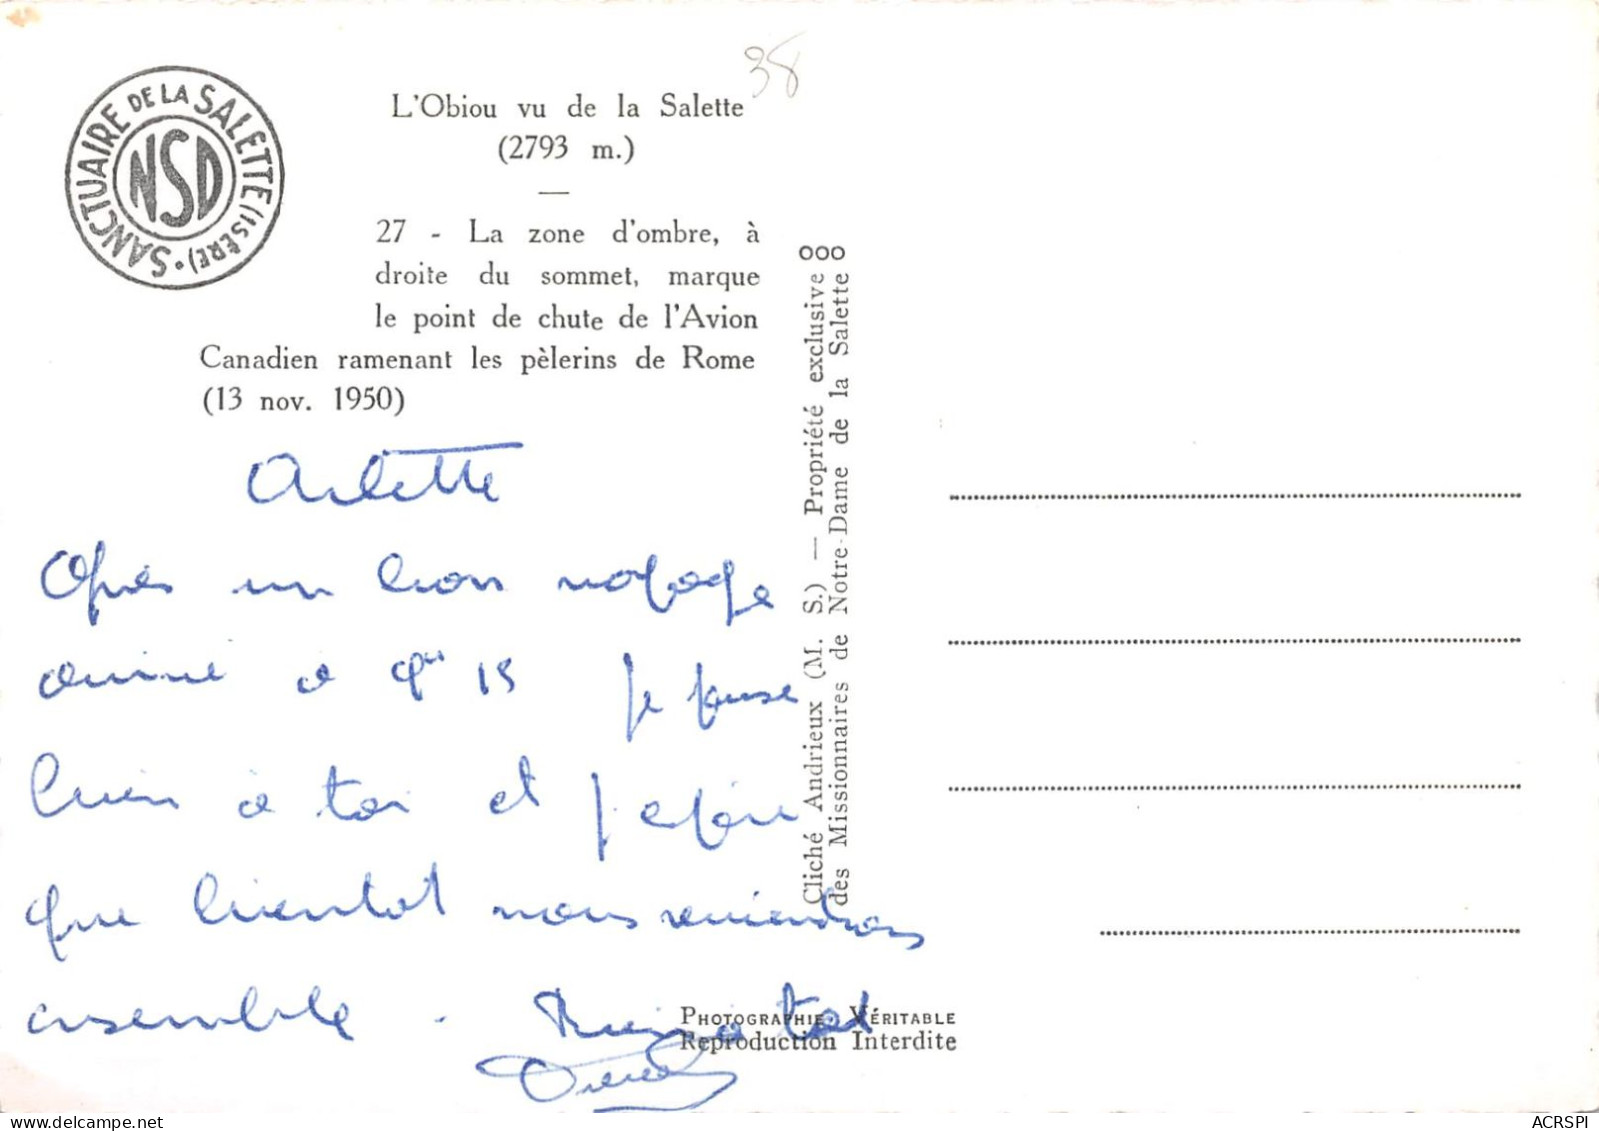 38
SANCTUAIRE DE LA SALETTE (ISÈRE) •
NSD
L'Obiou vu de la Salette
(2793 m.)
—
27 - La zone d'ombre, à
droite du sommet, marque
le point de chute de l'Avion
Canadien ramenant les pèlerins de Rome
(13 nov. 1950)
Arlette
Après un bon voyage
arrivé à 15 je pense
bien à toi et j espère
que bientot nous reviendrons
ensemble .
000
Cliché Andrieux (M. S.) — Propriété exclusive
des Missionnaires de Notre-Dame de la Salette
PHOTOGRAPHIE VÉRITABLE
Reproduction Interdite
ACRSPI